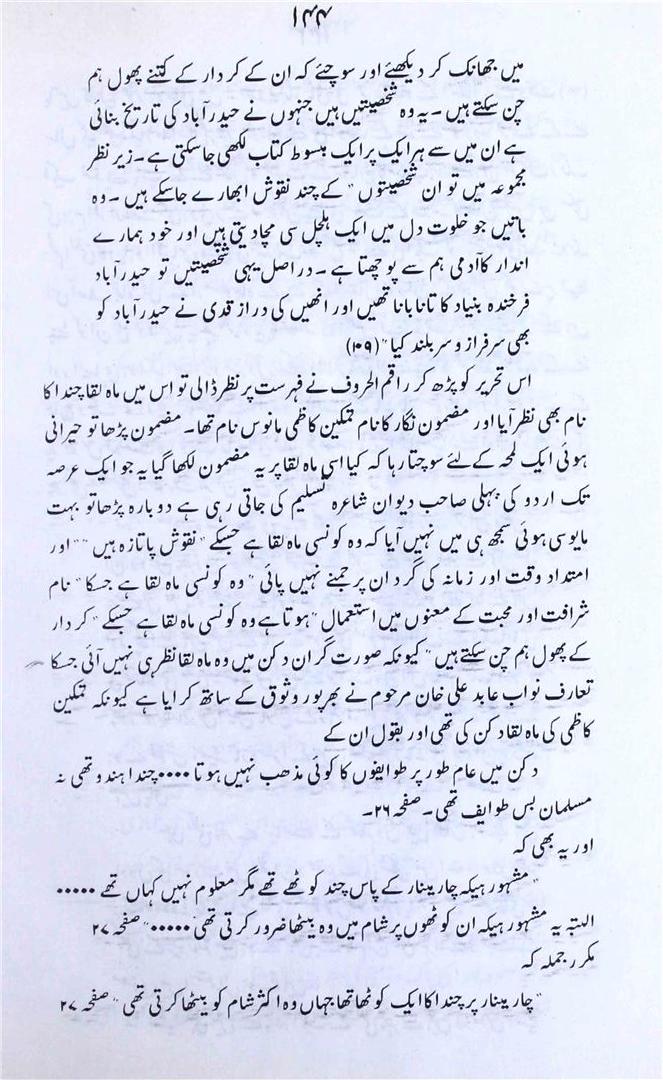 میں جھانک کر دیکھئے اور سوچئے کہ ان کے کردار کے کتنے پھول ہم
چن سکتے ہیں۔ یہ وہ شخصیتیں ہیں جنہوں نے حیدرآباد کی تاریخ بنائی
ہے ان میں سے ہر ایک پر ایک مبسوط کتاب لکھی جاسکتی ہے۔ زیر نظر
مجموعہ میں تو ان شخصیتوں" کے چند نقوش ابھارے جاسکے ہیں۔ وہ
باتیں جو خلوت دل میں ایک ہلچل سی مچادیتی ہیں اور خود ہمارے
اندار کا آدمی ہم سے پوچھتا ہے۔ دراصل یہی شخصیتیں تو حیدرآباد
فرخندہ بنیاد کا تانا بانا تھیں اور انھیں کی دراز قدی نے حیدرآباد کو
بھی سرفراز و سربلند کیا" (۳۹)
اس تحریر کو پڑھ کر راقم الحروف نے فہرست پر نظر ڈالی تو اس میں ماہ لقا چندا کا
نام بھی نظر آیا اور مضمون نگار کا نام تمکین کاظمی مانوس نام تھا۔ مضمون پڑھا تو حیرانی
ہوئی ایک لمحہ کے لئے سوچتا رہا کہ کیا اسی ماہ لقا پر یہ مضمون لکھا گیا یہ جو ایک عرصہ
تک اردو کی پہلی صاحب دیوان شاعرہ تسلیم کی جاتی رہی ہے دوبارہ پڑھا تو بہت
مایوسی ہوئی سمجھ ہی میں نہیں آیا کہ وہ کونسی ماہ لقا ہے جسکے "نقوش پا تازہ ہیں" "اور
امتداد وقت اور زمانہ کی گرد ان پر جمنے نہیں پائی" وہ کونسی ماہ لقا ہے جسکا "نام
شرافت اور محبت کے معنوں میں استعمال "ہوتا ہے وہ کونسی ماہ لقا ہے جسکے "کردار
کے پھول ہم چن سکتے ہیں" کیونکہ صورت گران دکن میں وہ ماہ لقا نظر ہی نہیں آئی جسکا
تعارف نواب عابد علی خان مرحوم نے بھرپور وثوق کے ساتھ کرایا ہے کیونکہ تمکین
کاظمی کی ماہ لقا دکن کی تھی اور بقول ان کے
دکن میں عام طور پر طوایفوں کا کوئی مذھب نہیں ہوتا .... چندا ہندو تھی نہ
مسلمان بس طوایف تھی۔ صفحہ ۲۶۔
اور یہ بھی کہ
"مشہور ہیکہ چار مینار کے پاس چند کوٹھے تھے مگر معلوم نہیں کہاں تھے .....
البتہ یہ مشہور ہیکہ ان کوٹھوں پر شام میں وہ بیٹھا ضرور کرتی تھی ....." صفحہ ۲۷
مکرر جملہ کہ
"چار مینار پر چندا کا ایک کوٹھا تھا جہاں وہ اکثر شام کو بیٹھا کرتی تھی" صفحہ ۲۷